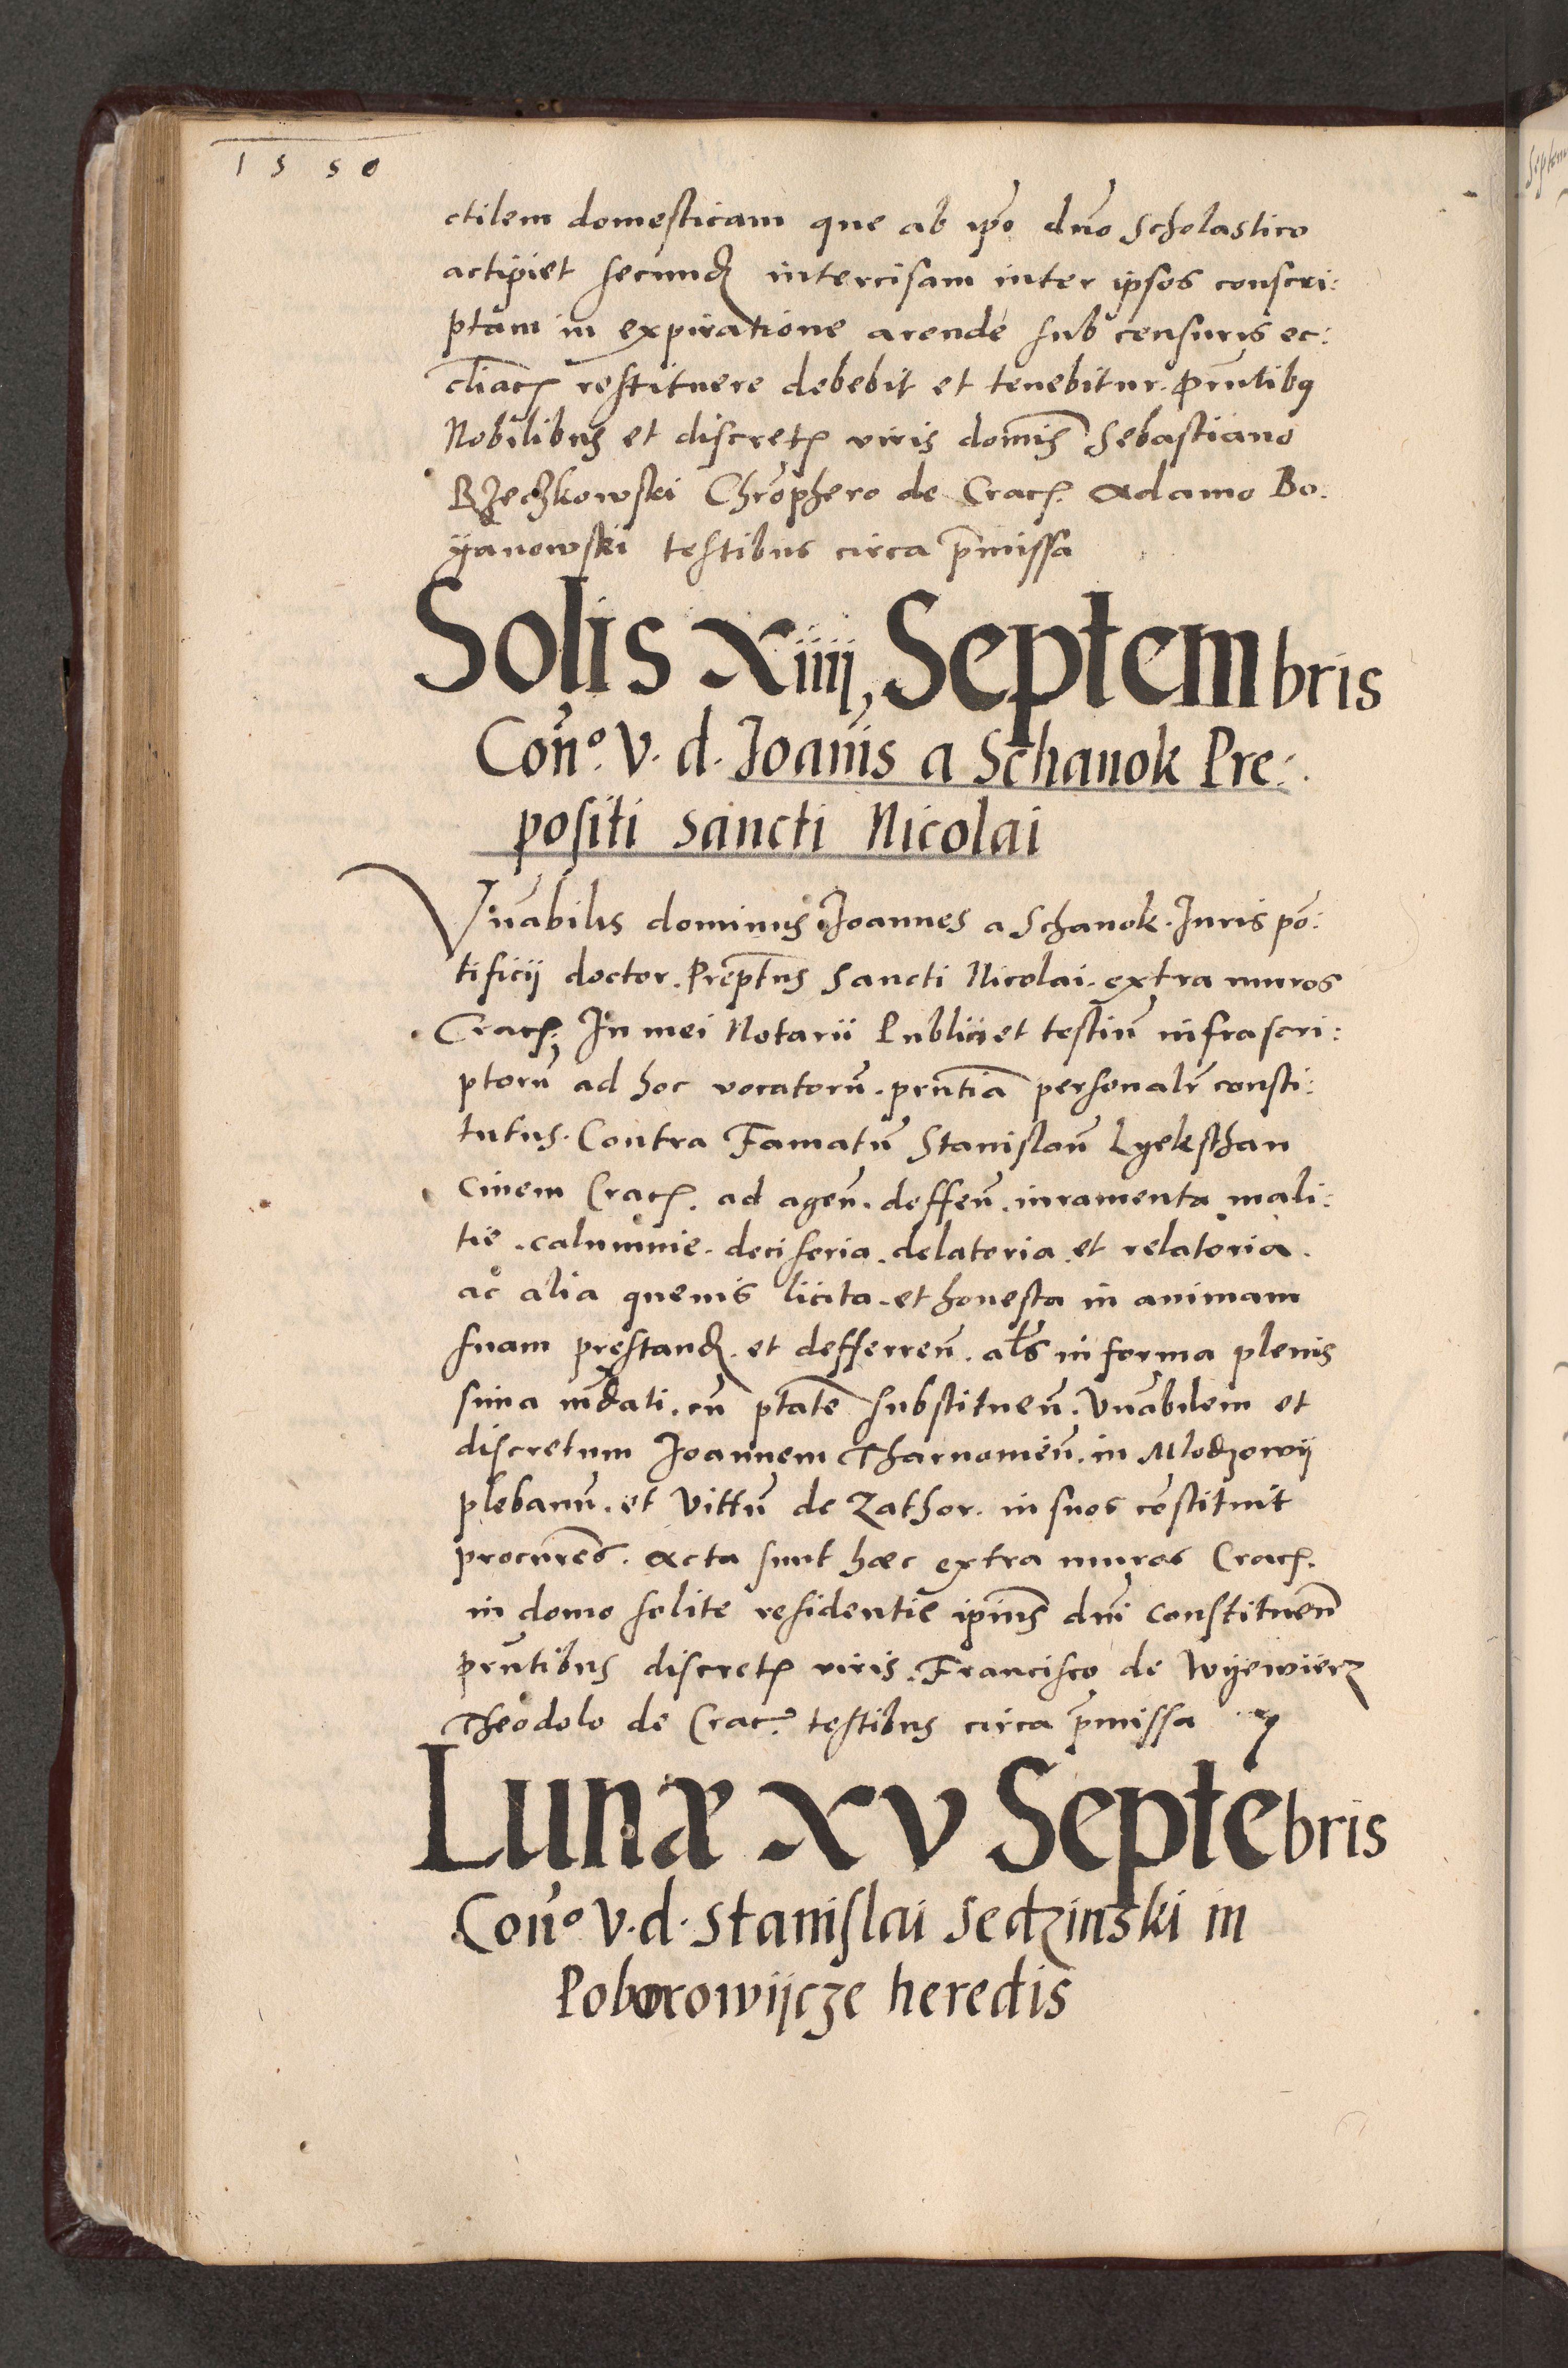 1550
ctilem domesticam que ab ip̄o dn̄o Scholastico
actipiet secund̨ intercisam inter ipsos conscri:
ptam in expiratione arende sub censuris ec:
cliac̄ʒ restituere debebit et tenebitur. Prn̄tibꝫ
Nobilibus et discretʒ viris domis̄ Sebastiano
Rzeczkowski Chrōphero de Cracʒ. Adamo Bo.
ÿanowski testibus circa p̄missa
Solis xiiij, Septembris
Con̄o. V. d. Joan̄is a Schanok Pre:.
positi sancti Nicolai
Vn̄abilis dominus Joannes a Schanok. Juris pō:
tificij doctor. Prept̄us Sancti Nicolai. extra muros
Cracʒ. In mei Notarii Publici et testiū infrascri:
ptorū ad hoc vocatorū. prn̄tia personalr̄ consti:
tutus. Contra Famatū Stanislaū Lyeksthan
Civem Cracʒ. ad agen̄. deffen̄. iuramenta mali:
tie. calumnie. decisoria. delatoria. et relatoria.
ac alia quevis licita. et honesta in animam
suam prestand̨. et defferren̄. al̄s in forma plenis
sima mn̄dati. cū ptāte substituen̄. Vn̄abilem et
discretum Joannem Tharnomien̄. in Mlodzowij
plebanū. et Vittū de Zathor. in suos cōstituit
procurēs. Acta sunt hæc extra muros Cracʒ.
in domo solite residentie ipius̄ dn̄i constituen̄
prn̄tibus discretʒ viris. Francisco de Wyewierz
Theodolo de Cracʒ. testibus circa p̄missa
Lunæ xv Septēbris
Con̄o V. d. Stanislai Sedzinski in
Poborowijcze heredis